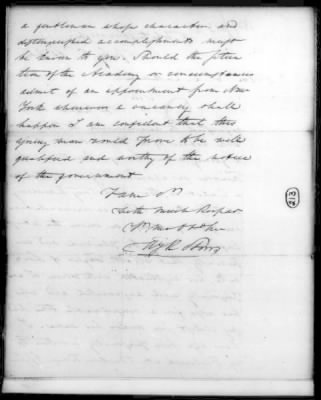 a gentleman whose character and
distinguished accomplishments must
be known to you. Should the situa
tion of the Academy or circumstances
admit of an appointment from New
York whenever a vacancy shall
happen I am confident that this
young man would prove to be well
qualified and worthy of the notice
of the government
I am Sir
with much Respect
Yr. Mo. Obt. Sr.
213